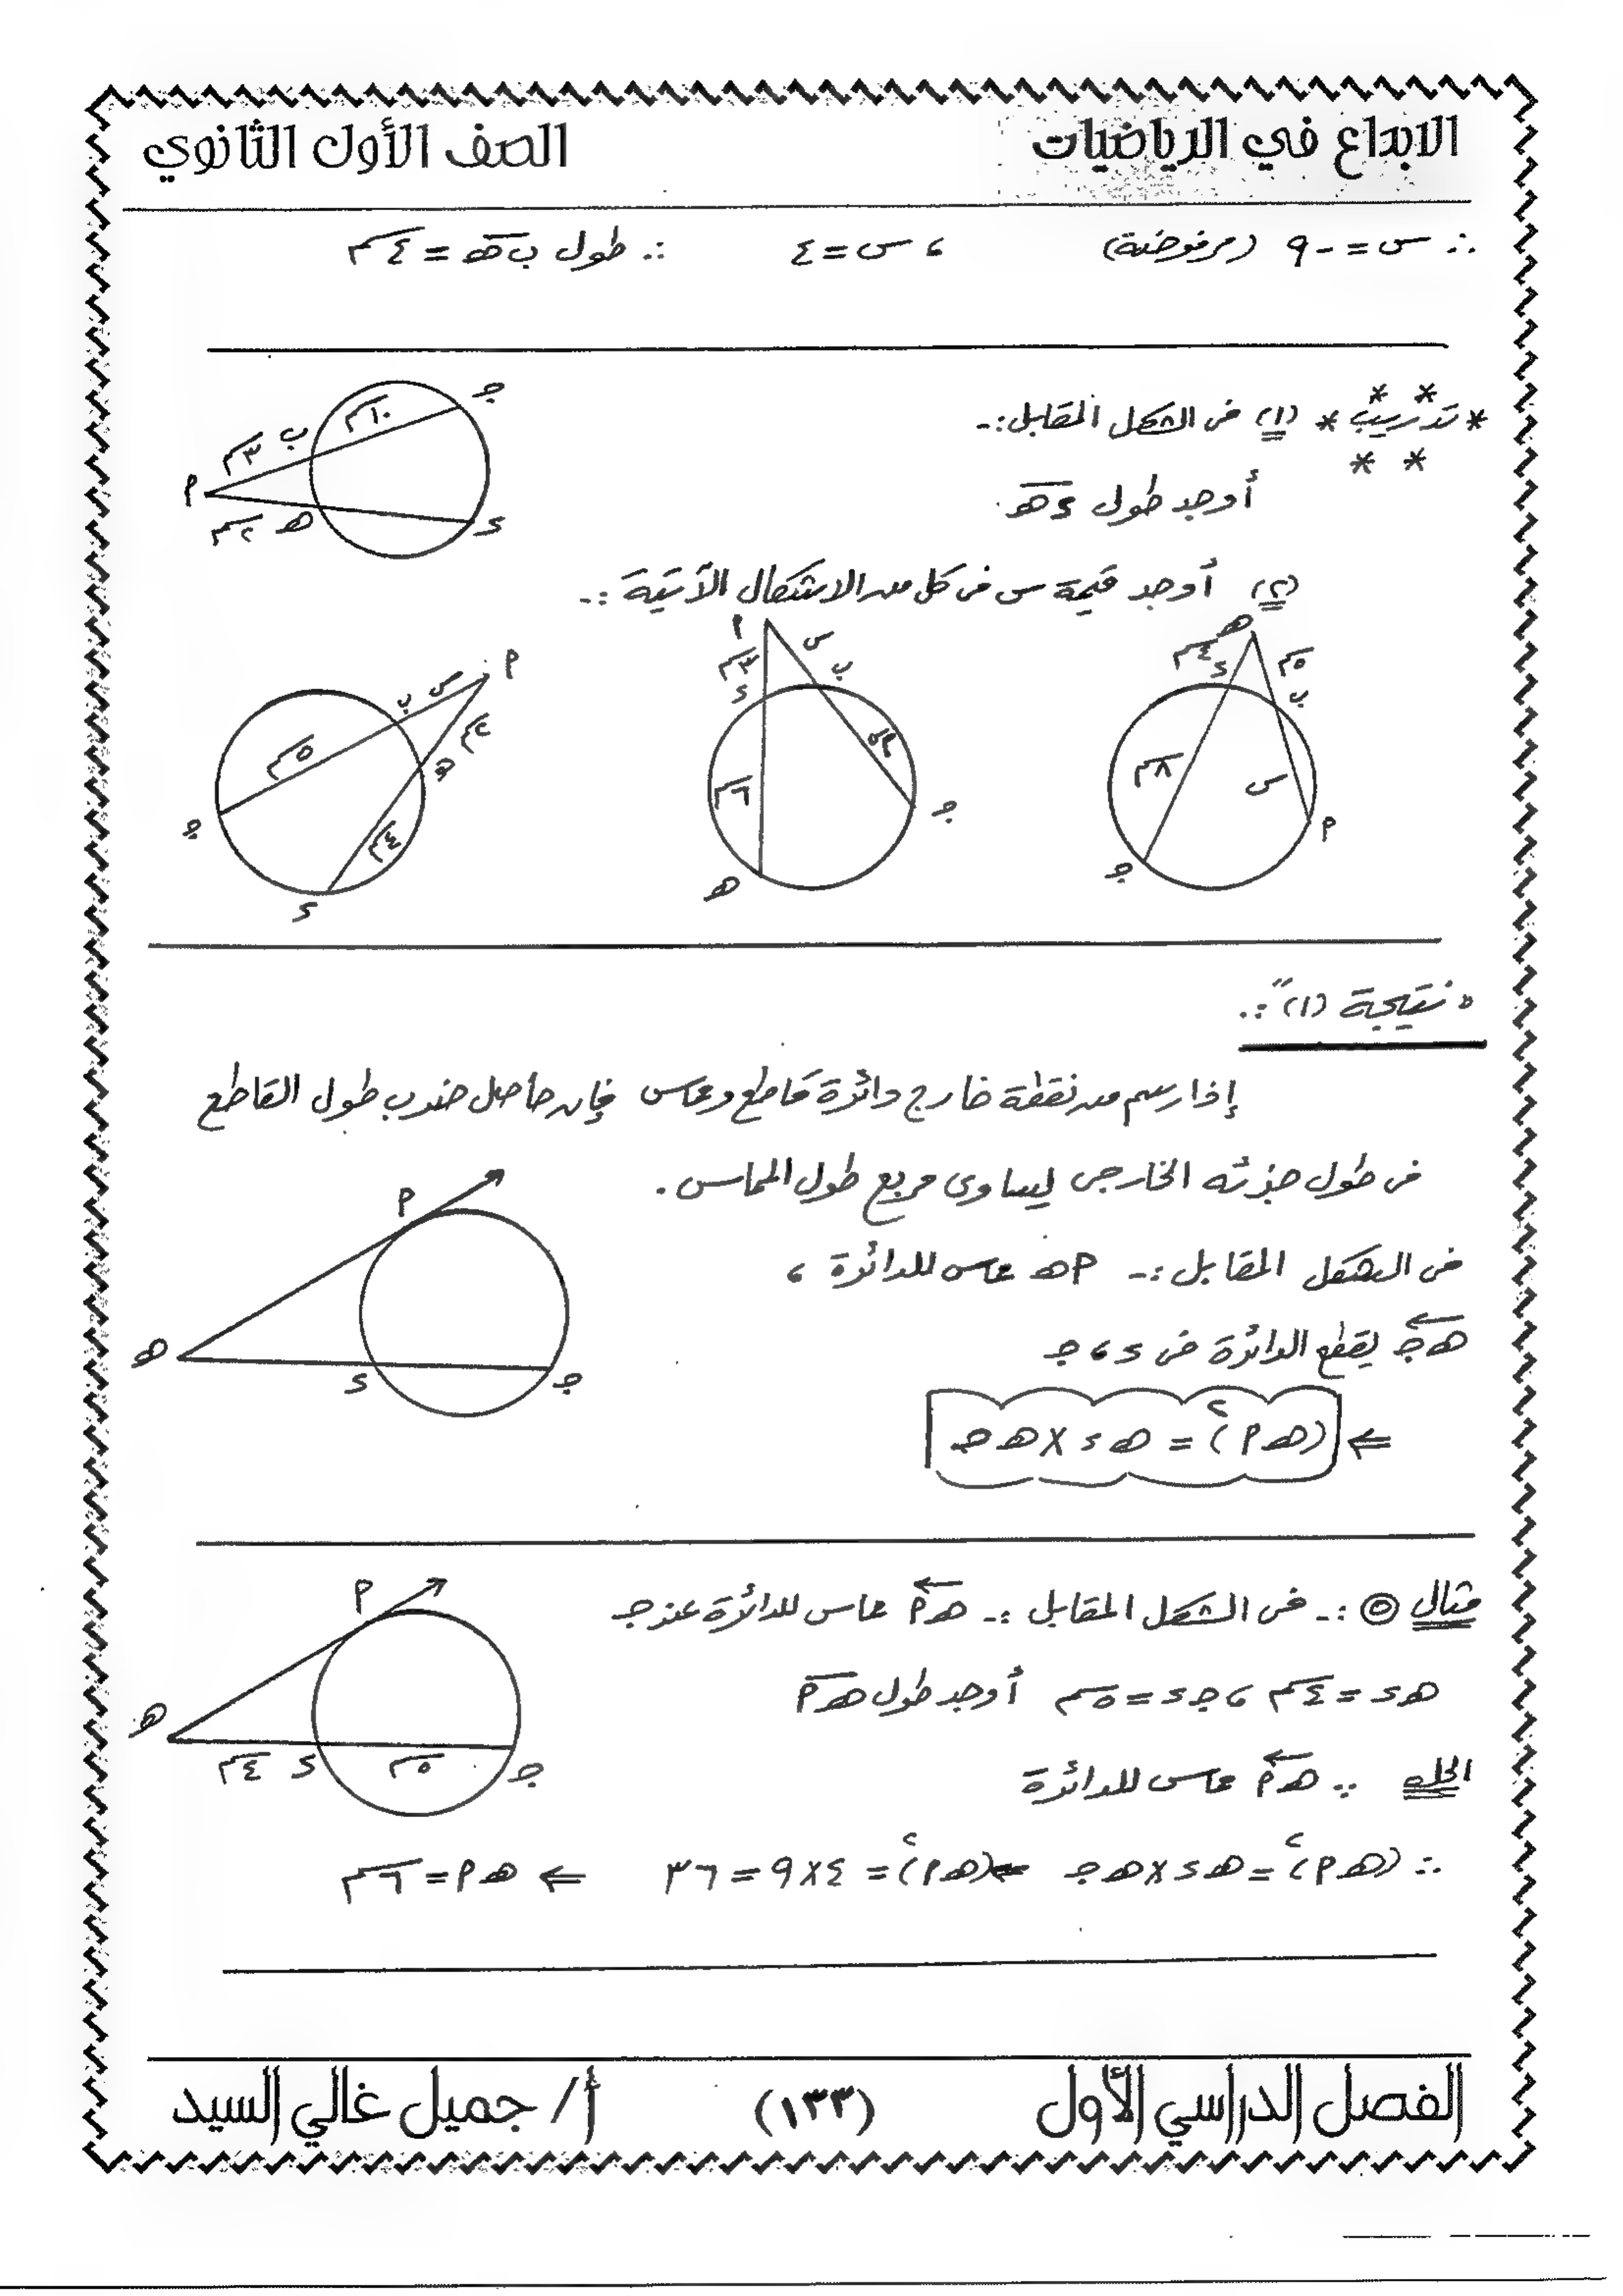 الابداع في الرياضيات
الصف الأول الثانوي
∴ س = -٩ (مرفوضة) ، س = ٤ ∴ طول ب هـ = ٤سم
* تدريب * (١) فى الشكل المقابل :-
أوجد طول د هـ
جـ
١٠سم
ب
٣سم
م
٢سم
هـ
د
(٢) أوجد قيمة س فى كل من الاشكال الآتية :-
هـ
٤سم
٥سم
د
ب
٨سم
س
م
جـ
م
س
٣سم
ب
د
٦سم
جـ
هـ
م
س
ب
٢سم
٥سم
هـ
جـ
٤سم
د
نتيجة (١) :-
إذا رسم من نقطة خارج دائرة قاطع ومماس فإن حاصل ضرب طول القاطع
فى طول جزئه الخارجى يساوى مربع طول المماس .
فى الشكل المقابل :- م هـ مماس للدائرة ،
هـ جـ يقطع الدائرة فى د ، جـ
⇐ (هـ م)٢ = هـ د × هـ جـ
م
هـ
د
جـ
مثال ٥ :- فى الشكل المقابل :- هـ م مماس للدائرة عند جـ
هـ د = ٤سم ، جـ د = ٥سم أوجد طول هـ م
م
هـ
٤سم
د
٥سم
جـ
الحل ∵ هـ م مماس للدائرة
∴ (هـ م)٢ = هـ د × هـ جـ ⇐ (هـ م)٢ = ٤ × ٩ = ٣٦ ⇐ هـ م = ٦سم
الفصل الدراسي الأول
(١٣٣)
أ / جميل غالي السيد